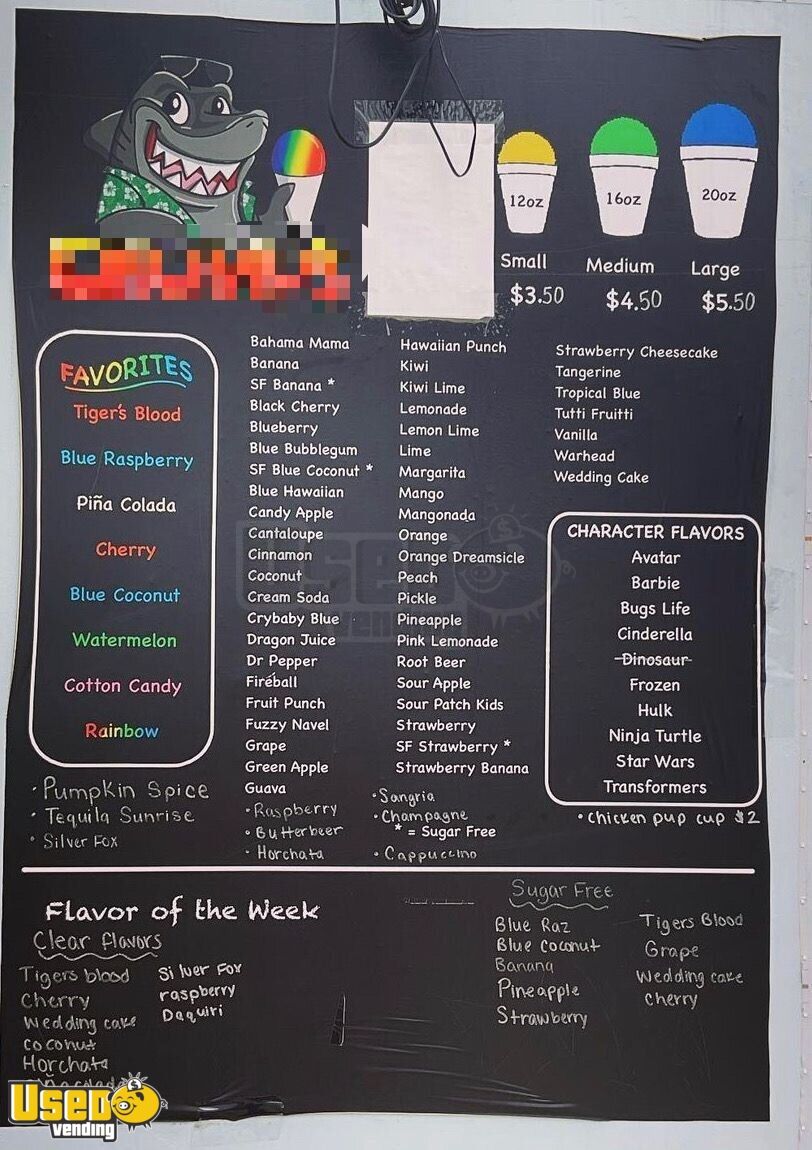 12oz
16oz
20oz
Small
Medium
Large
$3.50
$4.50
$5.50
FAVORITES
Tiger's Blood
Blue Raspberry
Piña Colada
Cherry
Blue Coconut
Watermelon
Cotton Candy
Rainbow
· Pumpkin Spice
· Tequila Sunrise
· Silver Fox
Bahama Mama
Banana
SF Banana *
Black Cherry
Blueberry
Blue Bubblegum
SF Blue Coconut *
Blue Hawaiian
Candy Apple
Cantaloupe
Cinnamon
Coconut
Cream Soda
Crybaby Blue
Dragon Juice
Dr Pepper
Fireball
Fruit Punch
Fuzzy Navel
Grape
Green Apple
Guava
· Raspberry
· Butterbeer
· Horchata
Hawaiian Punch
Kiwi
Kiwi Lime
Lemonade
Lemon Lime
Lime
Margarita
Mango
Mangonada
Orange
Orange Dreamsicle
Peach
Pickle
Pineapple
Pink Lemonade
Root Beer
Sour Apple
Sour Patch Kids
Strawberry
SF Strawberry *
Strawberry Banana
· Sangria
· Champagne
* = Sugar Free
· Cappuccino
Strawberry Cheesecake
Tangerine
Tropical Blue
Tutti Fruitti
Vanilla
Warhead
Wedding Cake
CHARACTER FLAVORS
Avatar
Barbie
Bugs Life
Cinderella
Dinosaur
Frozen
Hulk
Ninja Turtle
Star Wars
Transformers
· Chicken pup cup $2
Flavor of the Week
Clear flavors
Tigers blood
Cherry
Wedding cake
Coconut
Horchata
Silver Fox
raspberry
Daquiri
Sugar Free
Blue Raz
Blue Coconut
Banana
Pineapple
Strawberry
Tigers Blood
Grape
Wedding cake
Cherry
Used
vending
Used
vending